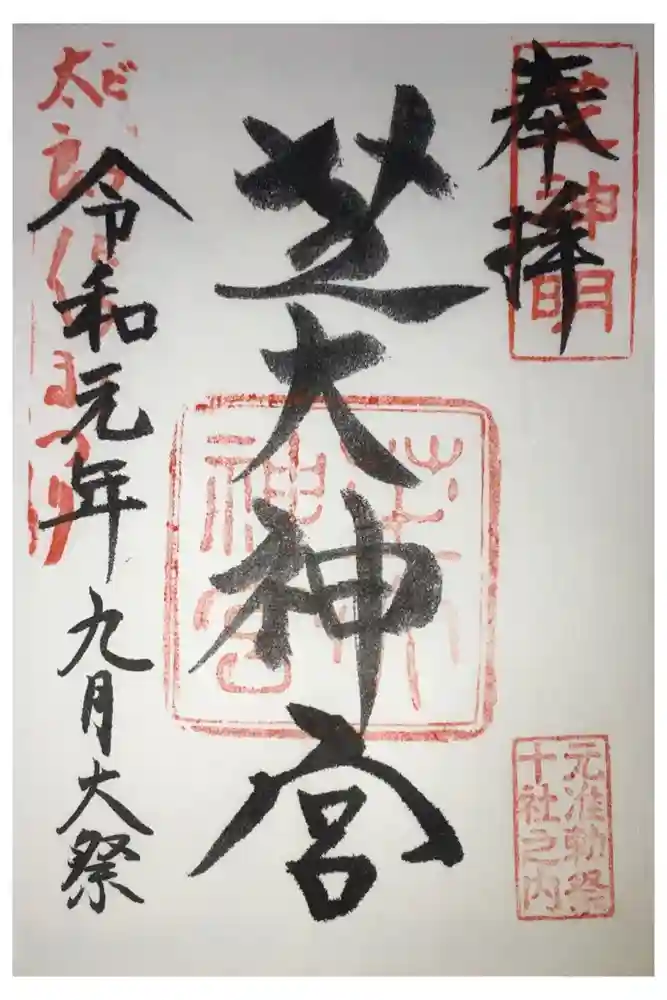 奉拝
芝神明
元准勅祭
十社之内
芝大神宮
芝大
神宮
令和元年九月大祭
太郎
まつり